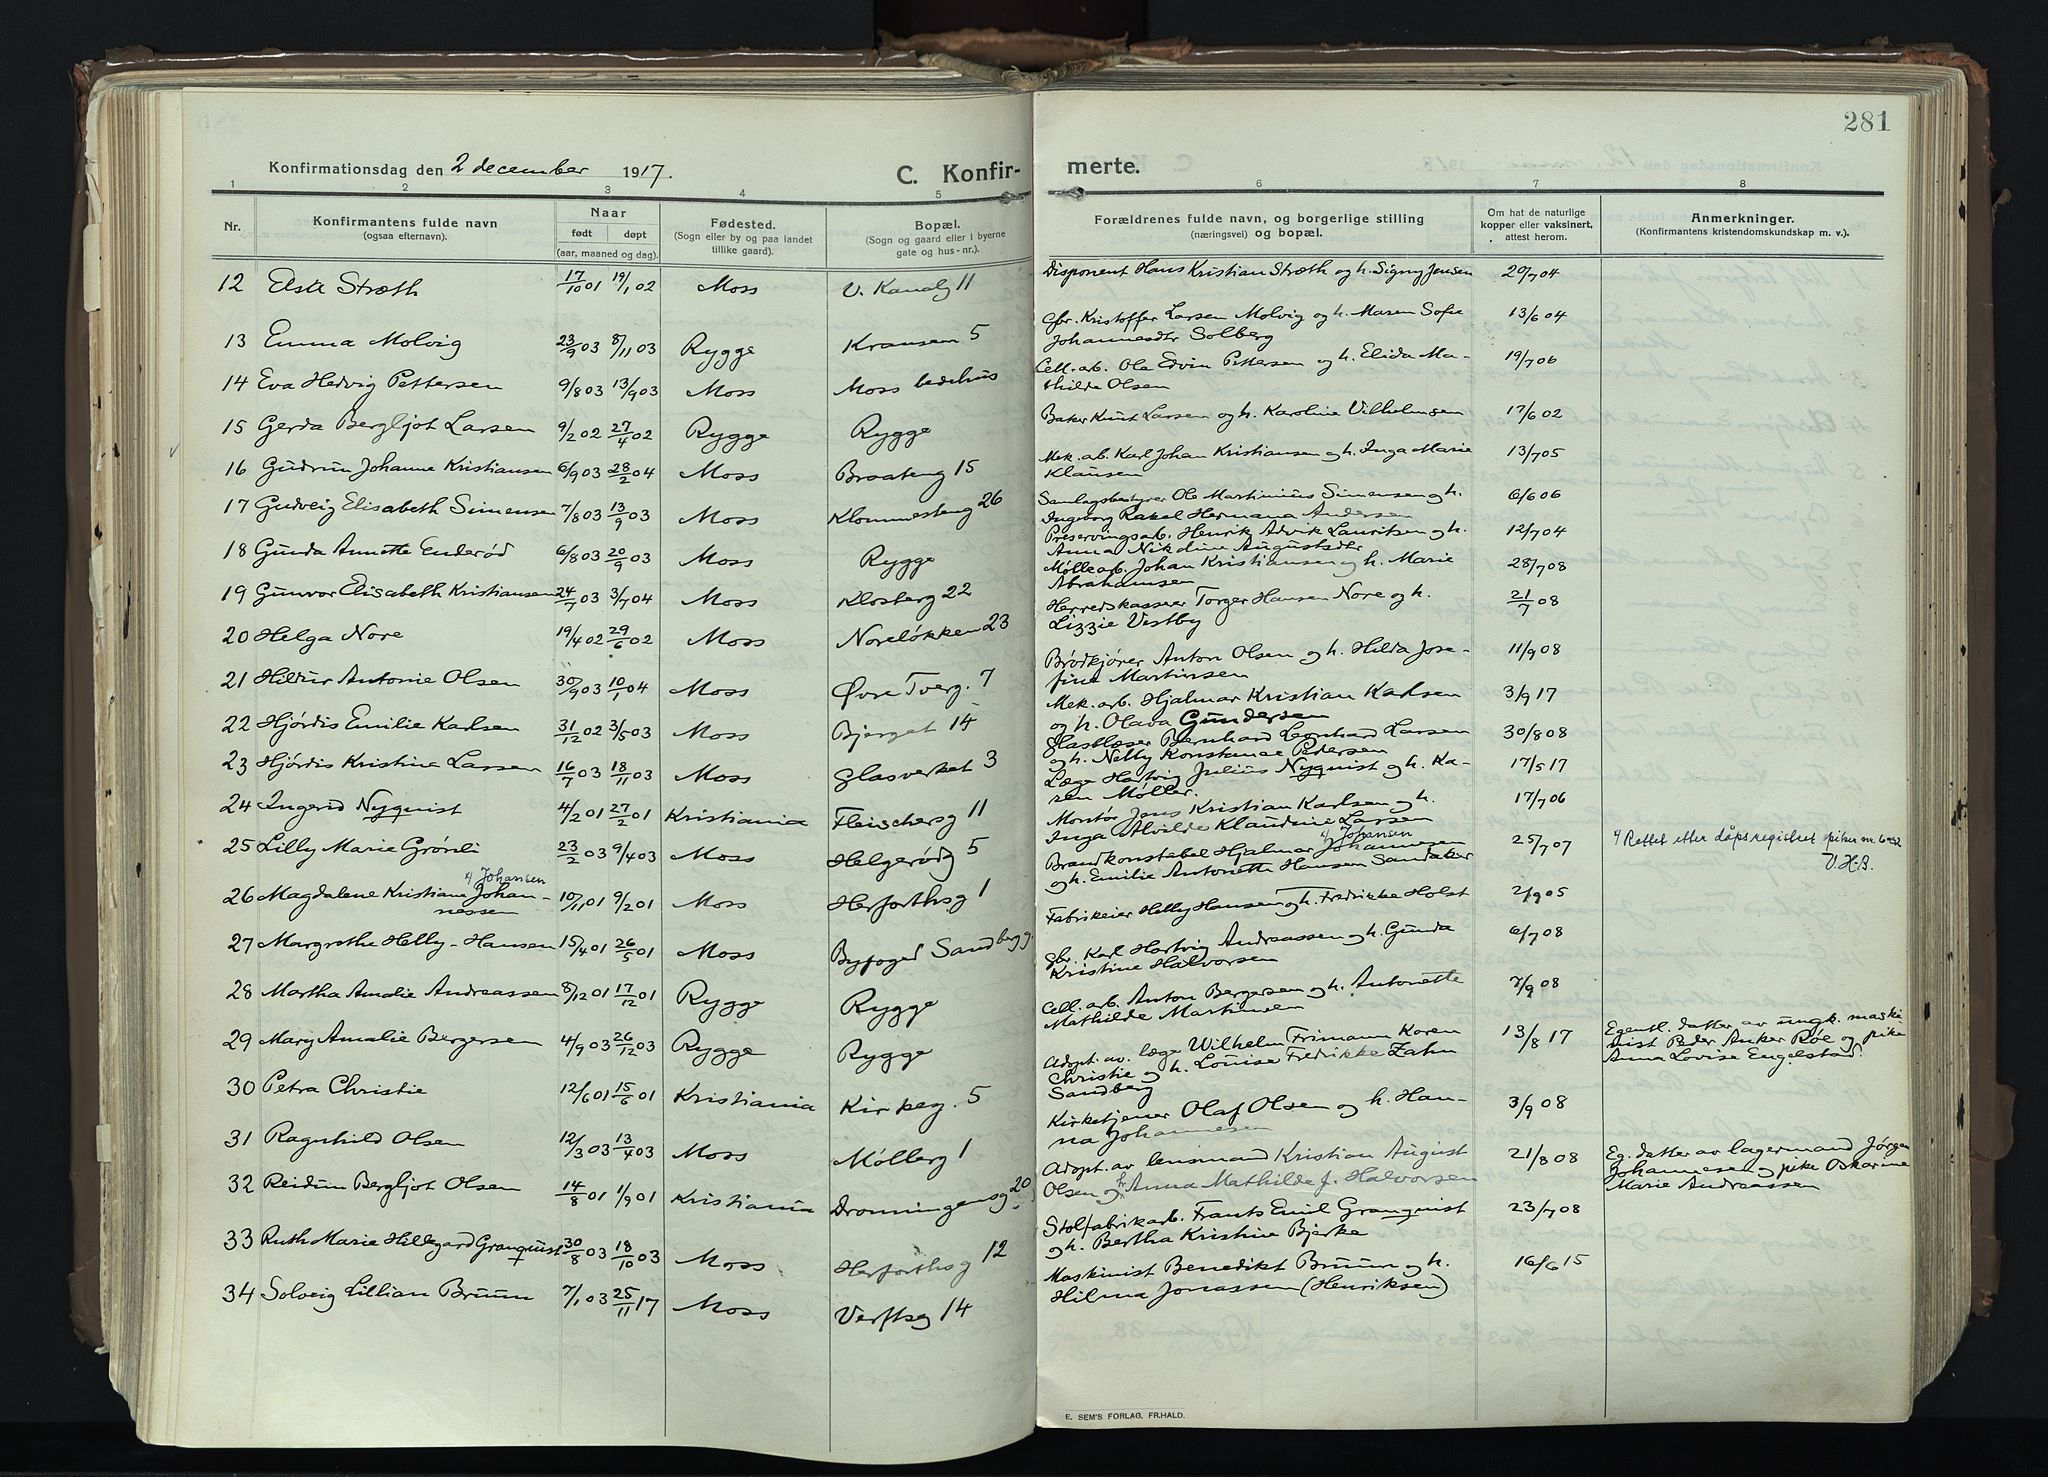 281
Konfirmationsdag den 2 december 1917.
C. Konfir-
merte.
1 2 3 4 5 6 7 8
Nr.
Konfirmantens fulde navn
(ogsaa efternavn).
Naar
født døpt
(aar, maaned og dag).
Fødested.
(Sogn eller by og paa landet
tillike gaard).
Bopæl.
(Sogn og gaard eller i byerne
gate og hus-nr.).
Forældrenes fulde navn, og borgerlige stilling
(næringsvei) og bopæl.
Om hat de naturlige
kopper eller vaksinert,
attest herom.
Anmerkninger.
(Konfirmantens kristendomskundskap m. v.).
12 Elsa Stræth 17/10 01 19/1 02 Moss V. Kanalg 11
Disponent Hans Kristian Stræth og h. Signy Jensen 20/7 04
13 Emma Molvig 23/9 03 8/11 03 Rygge Kransen 5
Gbr. Kristoffer Larsen Molvig og h. Maren Sofie 13/6 04
Johannesdtr Solberg
14 Eva Hedvig Pettersen 9/8 03 13/9 03 Moss Moss bedehus
Cell. arb. Ole Edvin Pettersen og h. Elida Ma- 19/7 06
thilde Olsen
15 Gerda Bergljot Larsen 9/2 02 27/4 02 Rygge Rygge
Baker Knut Larsen og h. Karoline Vilhelmsen 17/6 02
16 Gudrun Johanne Kristiansen 6/9 03 28/2 04 Moss Braateng 15
Mek. arb. Karl Johan Kristiansen og h. Inga Marie 13/7 05
Klausen
17 Gudveig Elisabeth Simensen 7/8 03 13/9 03 Moss Klommesteng 26
Samlagsbestyrer Ole Martinius Simensen og h. 6/6 06
Ingeborg Rakel Hermana Andersen
18 Gunda Annette Enderød 6/8 03 20/9 03 Moss Rygge
Preservingsarb. Henrik Advik Lauritsen og h. 12/7 04
Anna Nikoline Augustsdtr
19 Gunvor Elisabeth Kristiansen 24/7 03 3/7 04 Moss Klosterg 22
Møllearb. Johan Kristiansen og h. Marie 28/7 08
Abrahamsen
20 Helga Nore 19/4 02 29/6 02 Moss Noreløkken 23
Herredskasserer Torger Hansen Nore og h. 21/7 08
Lizzie Vestby
21 Hildur Antonie Olsen 30/9 03 10/1 04 Moss Øvre Tverg. 7
Brødkjører Anton Olsen og h. Hilda Jose- 11/9 08
fine Martinsen
22 Hjørdis Emilie Karlsen 31/12 02 3/5 03 Moss Bjerget 14
Mek. arb. Hjalmar Kristian Karlsen 3/9 17
og h. Olava Gundersen
23 Hjørdis Kristine Larsen 16/7 03 18/11 03 Moss Glasverket 3
Glasblæser Bernhard Leonhard Larsen 30/8 08
og h. Nelly Konstanse Pedersen
24 Ingerid Nyquist 4/2 01 27/2 01 Kristiania Fleischersg 11
Læge Hartvig Julius Nyquist og h. Ka- 17/5 17
ren Møller.
25 Lilly Marie Grønli 23/2 03 9/4 03 Moss Helgerødg 5
Montør Jens Kristian Karlsen og h. 17/7 06
Inga Alvilde Klaudine Larsen
26 Magdalene Kristiane Johan-
nessen
Johansen
10/11 01 9/2 01 Moss Herforthsg 1
Johansen
Brandkonstabel Hjalmar Johannesen 25/7 07
og h. Emilie Antonette Hansen Sandaker
Rettet etter dåpsregistret piker nr.
V.H.B.
27 Margrethe Helly-Hansen 15/4 01 26/5 01 Moss Byfoged Sandbergg.
Fabrikeier Helly Hansen og h. Fredrikke Holst 2/9 05
28 Martha Amalie Andreassen 8/12 01 17/12 01 Rygge Rygge
Gbr. Karl Hartvig Andreassen og h. Gunda 6/7 08
Kristine Halvorsen
29 Mary Amalie Bergersen 4/9 03 26/12 03 Rygge Rygge
Cell. arb. Anton Bergersen og h. Antonette 7/9 08
Mathilde Martinsen
30 Petra Christie 12/6 01 15/6 01 Kristiania Kirkeg. 5
Adopt. av. læge Wilhelm Frimann Koren 13/8 17
Christie og h. Louise Fredrikke Zahn
Sandberg
Egentl. datter av ungk. maski
nist Peder Anker Røe og pike
Anna Lovise Engelstad.
31 Ragnhild Olsen 12/3 03 13/4 03 Moss Møllerg 1
Kirketjener Olaf Olsen og h. Han- 3/9 08
na Johannesen
32 Reidun Bergljot Olsen 14/8 01 1/9 01 Kristiania Dronningensg 20
Adopt. av lensmand Kristian August 21/8 08
Olsen og h. Anna Mathilde f. Halvorsen
Eg. datter av lagermand Jørgen
Johannesen og pike Oskarine
Marie Andreassen
33 Ruth Marie Hildegard Granquist 30/8 03 18/10 03 Moss Herforthsg 12
Stolfabrikarb. Frants Emil Granquist 23/7 08
og h. Bertha Kristine Bjerke
34 Solveig Lillian Bruun 7/1 03 25/11 17 Moss Verftsg 14
Maskinist Benedikt Bruun og h. 16/6 15
Hilma Jonassen (Henriksen)
E. SEM'S FORLAG, FR.HALD.